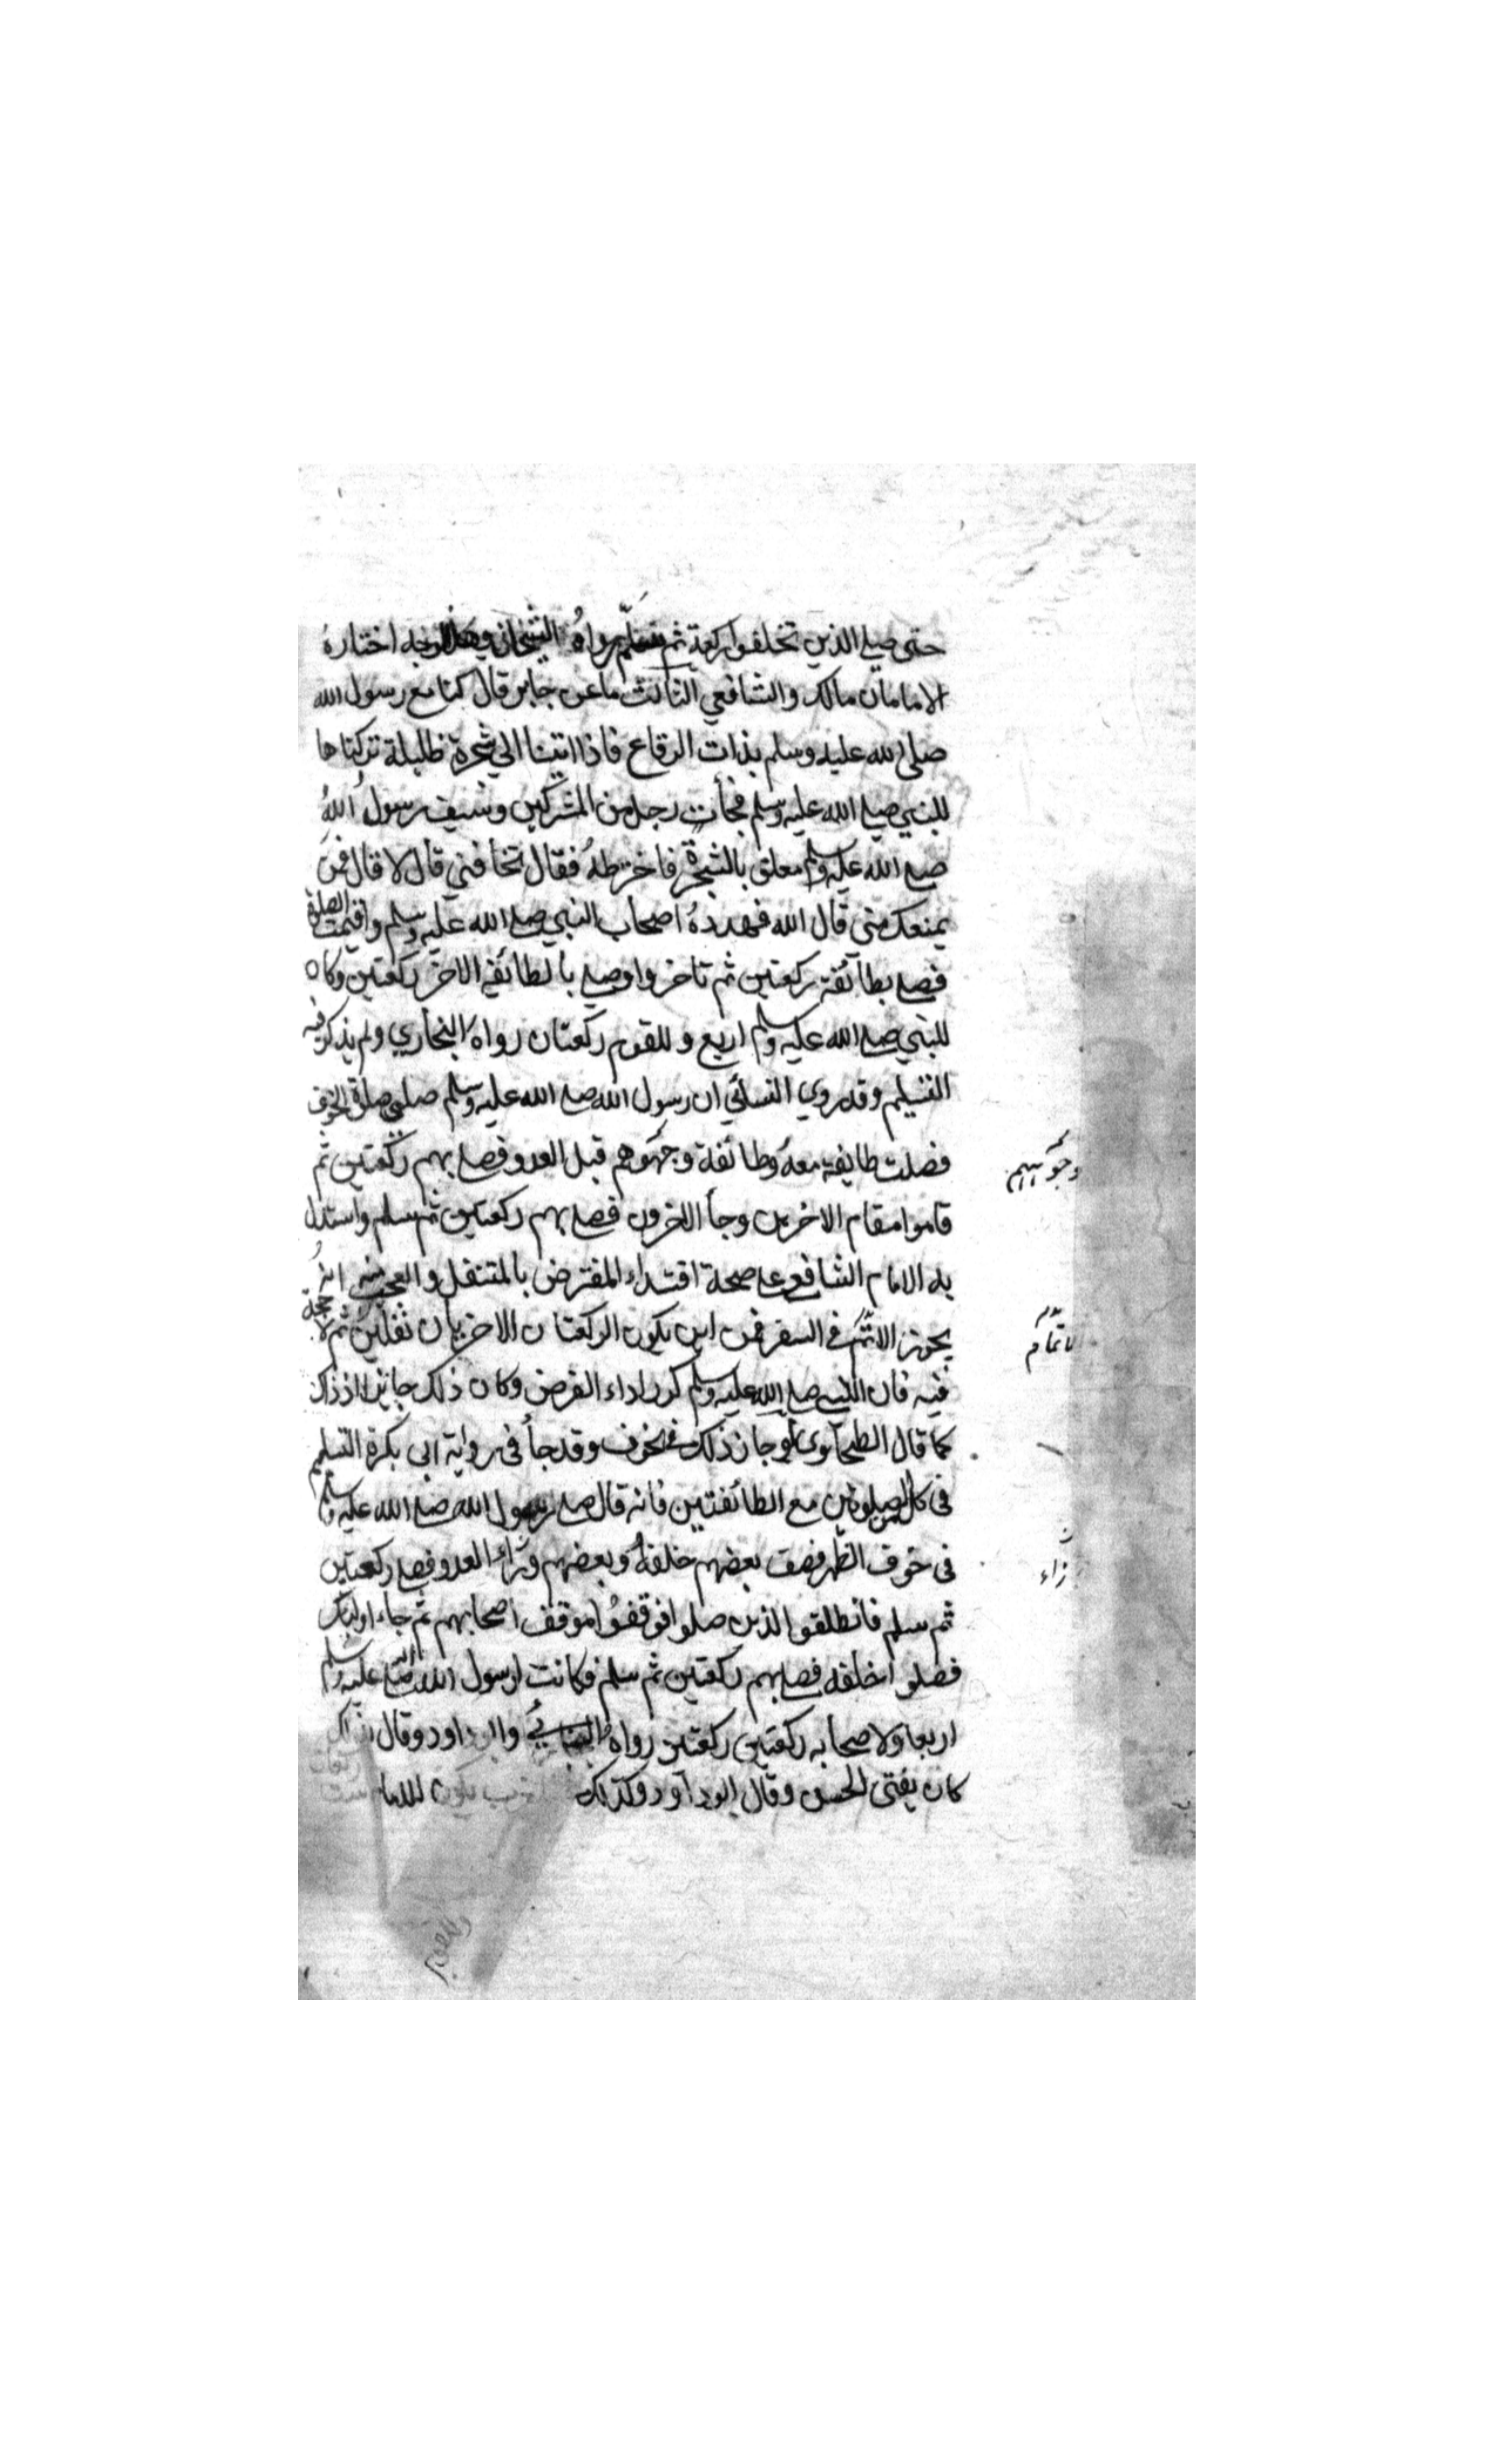 حتى صلى الذين تخلفوا ركعة ثم سلم رواه الشيخان وهذا الوجه اختاره
الامامان مالك والشافعي الثالث ما عن جابر قال كنا مع رسول الله
صلى الله عليه وسلم بذات الرقاع فاذا اتينا الي شجرة ظليلة تركناها
للنبي صلى الله عليه وسلم فجأت رجل من المشركين وسيف رسول الله
صلى الله عليه وسلم معلق بالشجرة فاخترطه فقال تخافني قال لا قال فمن
يمنعك مني قال الله فهدده اصحاب النبي صلى الله عليه وسلم واقيمت الصلوة
فصلى بطائفة ركعتين ثم تاخروا وصلى بالطائفة الاخر ركعتين وكان
للنبي صلى الله عليه وسلم اربع وللقوم ركعتان رواه البخاري ولم يذكر فيه
التسليم وقد روي النسائي ان رسول الله صلى الله عليه وسلم صلى صلوة الخوف
فصلت طايفة معه وطائفة وجهوهم قبل العدو فصلى بهم ركعتين ثم
قاموا مقام الاخرين وجأ الاخرون فصلى بهم ركعتين ثم سلم واستدل
به الامام الشافعي على صحة اقتداء المفترض بالمتنفل والعجب منه انه
يجوز الاتم في السفر فمن اين يكون الركعتان الاخريان نفلين ثم لا حجة
فيه فان النبي صلى الله عليه وسلم كرر اداء الفرض وكان ذلك جايزا اذ ذاك
كما قال الطحاوي او جاز ذلك في الخوف وقد جأ في رواية ابي بكرة التسليم
في كل الصلوتين مع الطائفتين فانه قال صلى رسول الله صلى الله عليه وسلم
في خوف الظهر فصف بعضهم خلفه وبعضهم وراء العدو فصلى ركعتين
ثم سلم فانطلقوا الذين صلوا فوقفوا موقف اصحابهم ثم جاء اولئك
فصلوا خلفه فصلى بهم ركعتين ثم سلم فكانت لرسول الله صلى الله عليه وسلم
اربعا ولاصحابه ركعتين ركعتين رواه النسائي وابو داود وقال
كان يفتي الحسن وقال ابو داود وكذلك يكون للامام